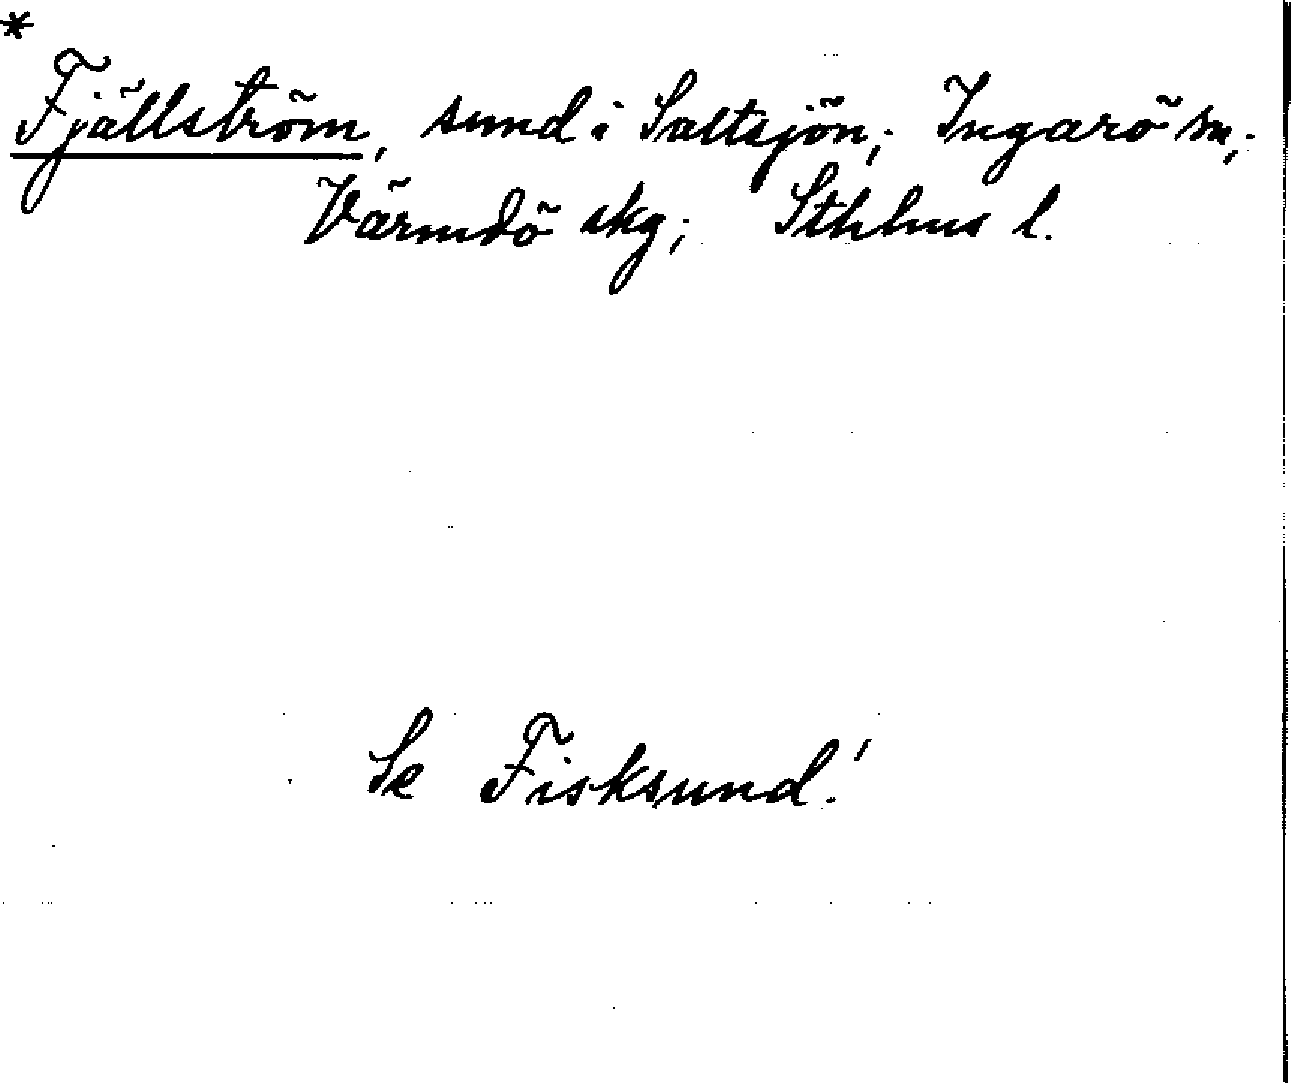 *
Fjällström, sund i Saltsjön; Ingarö sn;
Värmdö skg; Sthlms l.
Se Fisksund!